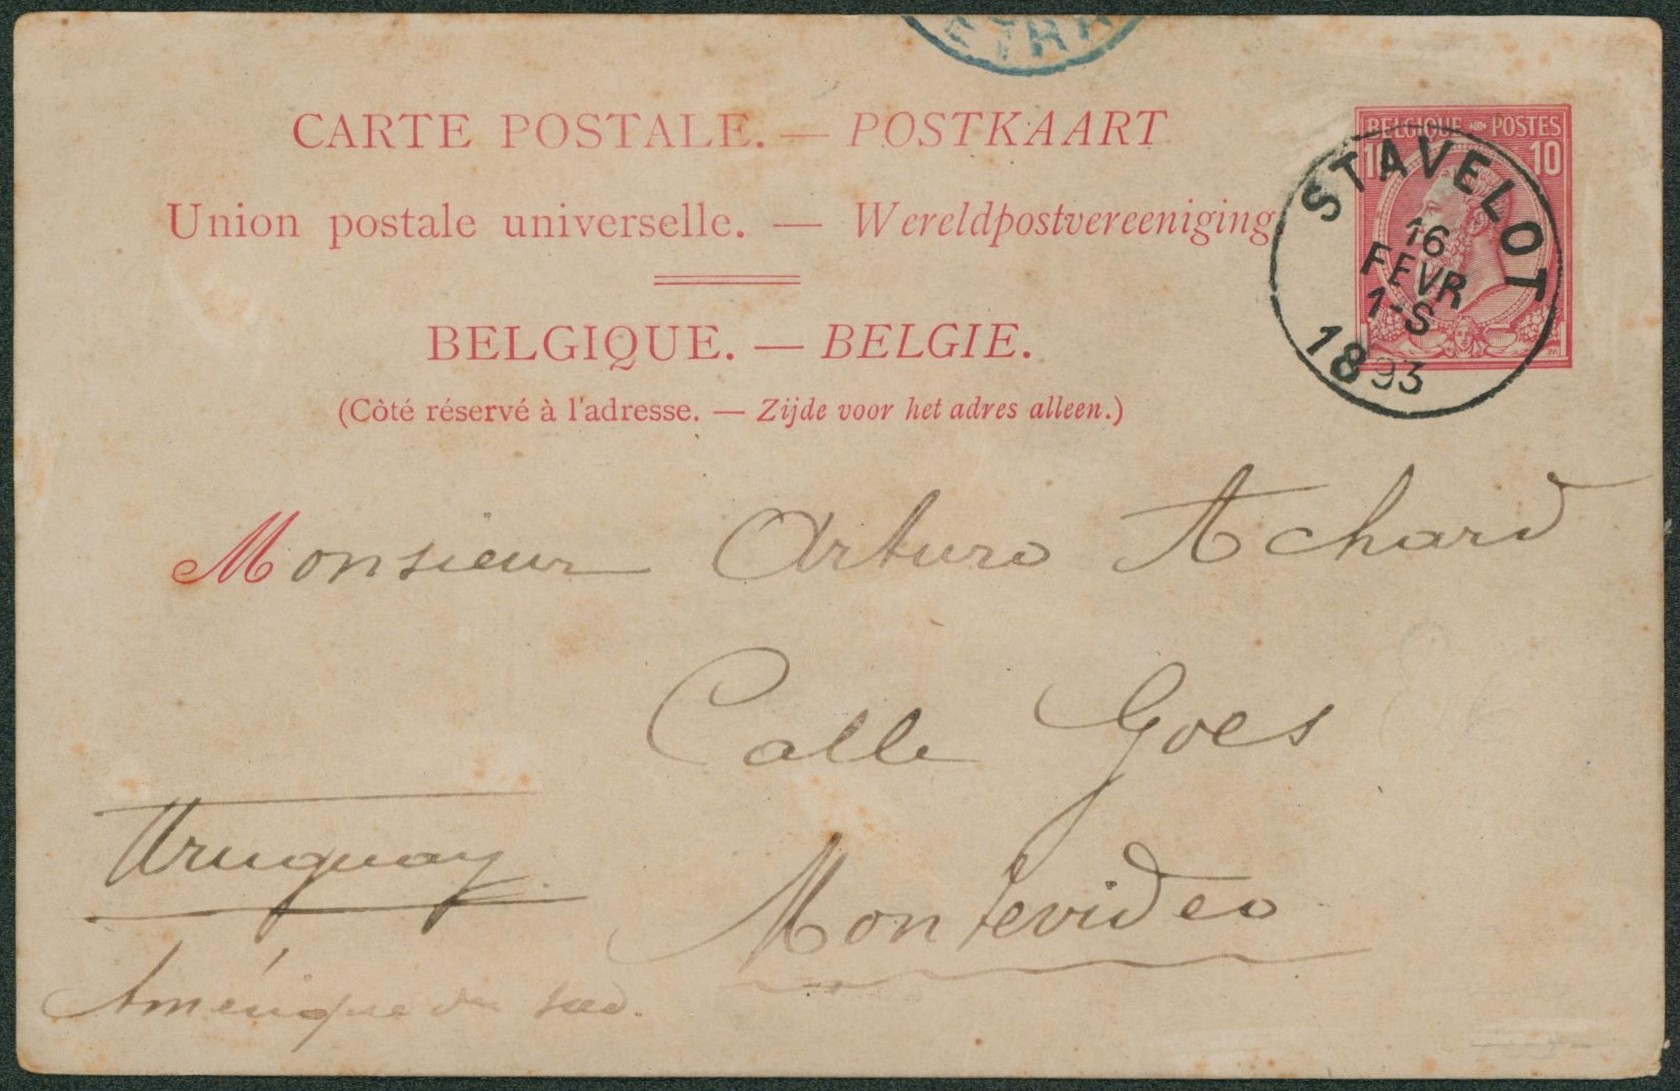 CARTE POSTALE. — POSTKAART
Union postale universelle. — Wereldpostvereeniging
BELGIQUE. — BELGIE.
(Côté réservé à l'adresse. — Zijde voor het adres alleen.)
BELGIQUE POSTES
10 10
STAVELOT
16
FEVR
1-S
1893
Monsieur Arturo Achard
Calle Goes
Montevideo
Uruguay
Amérique du Sud.